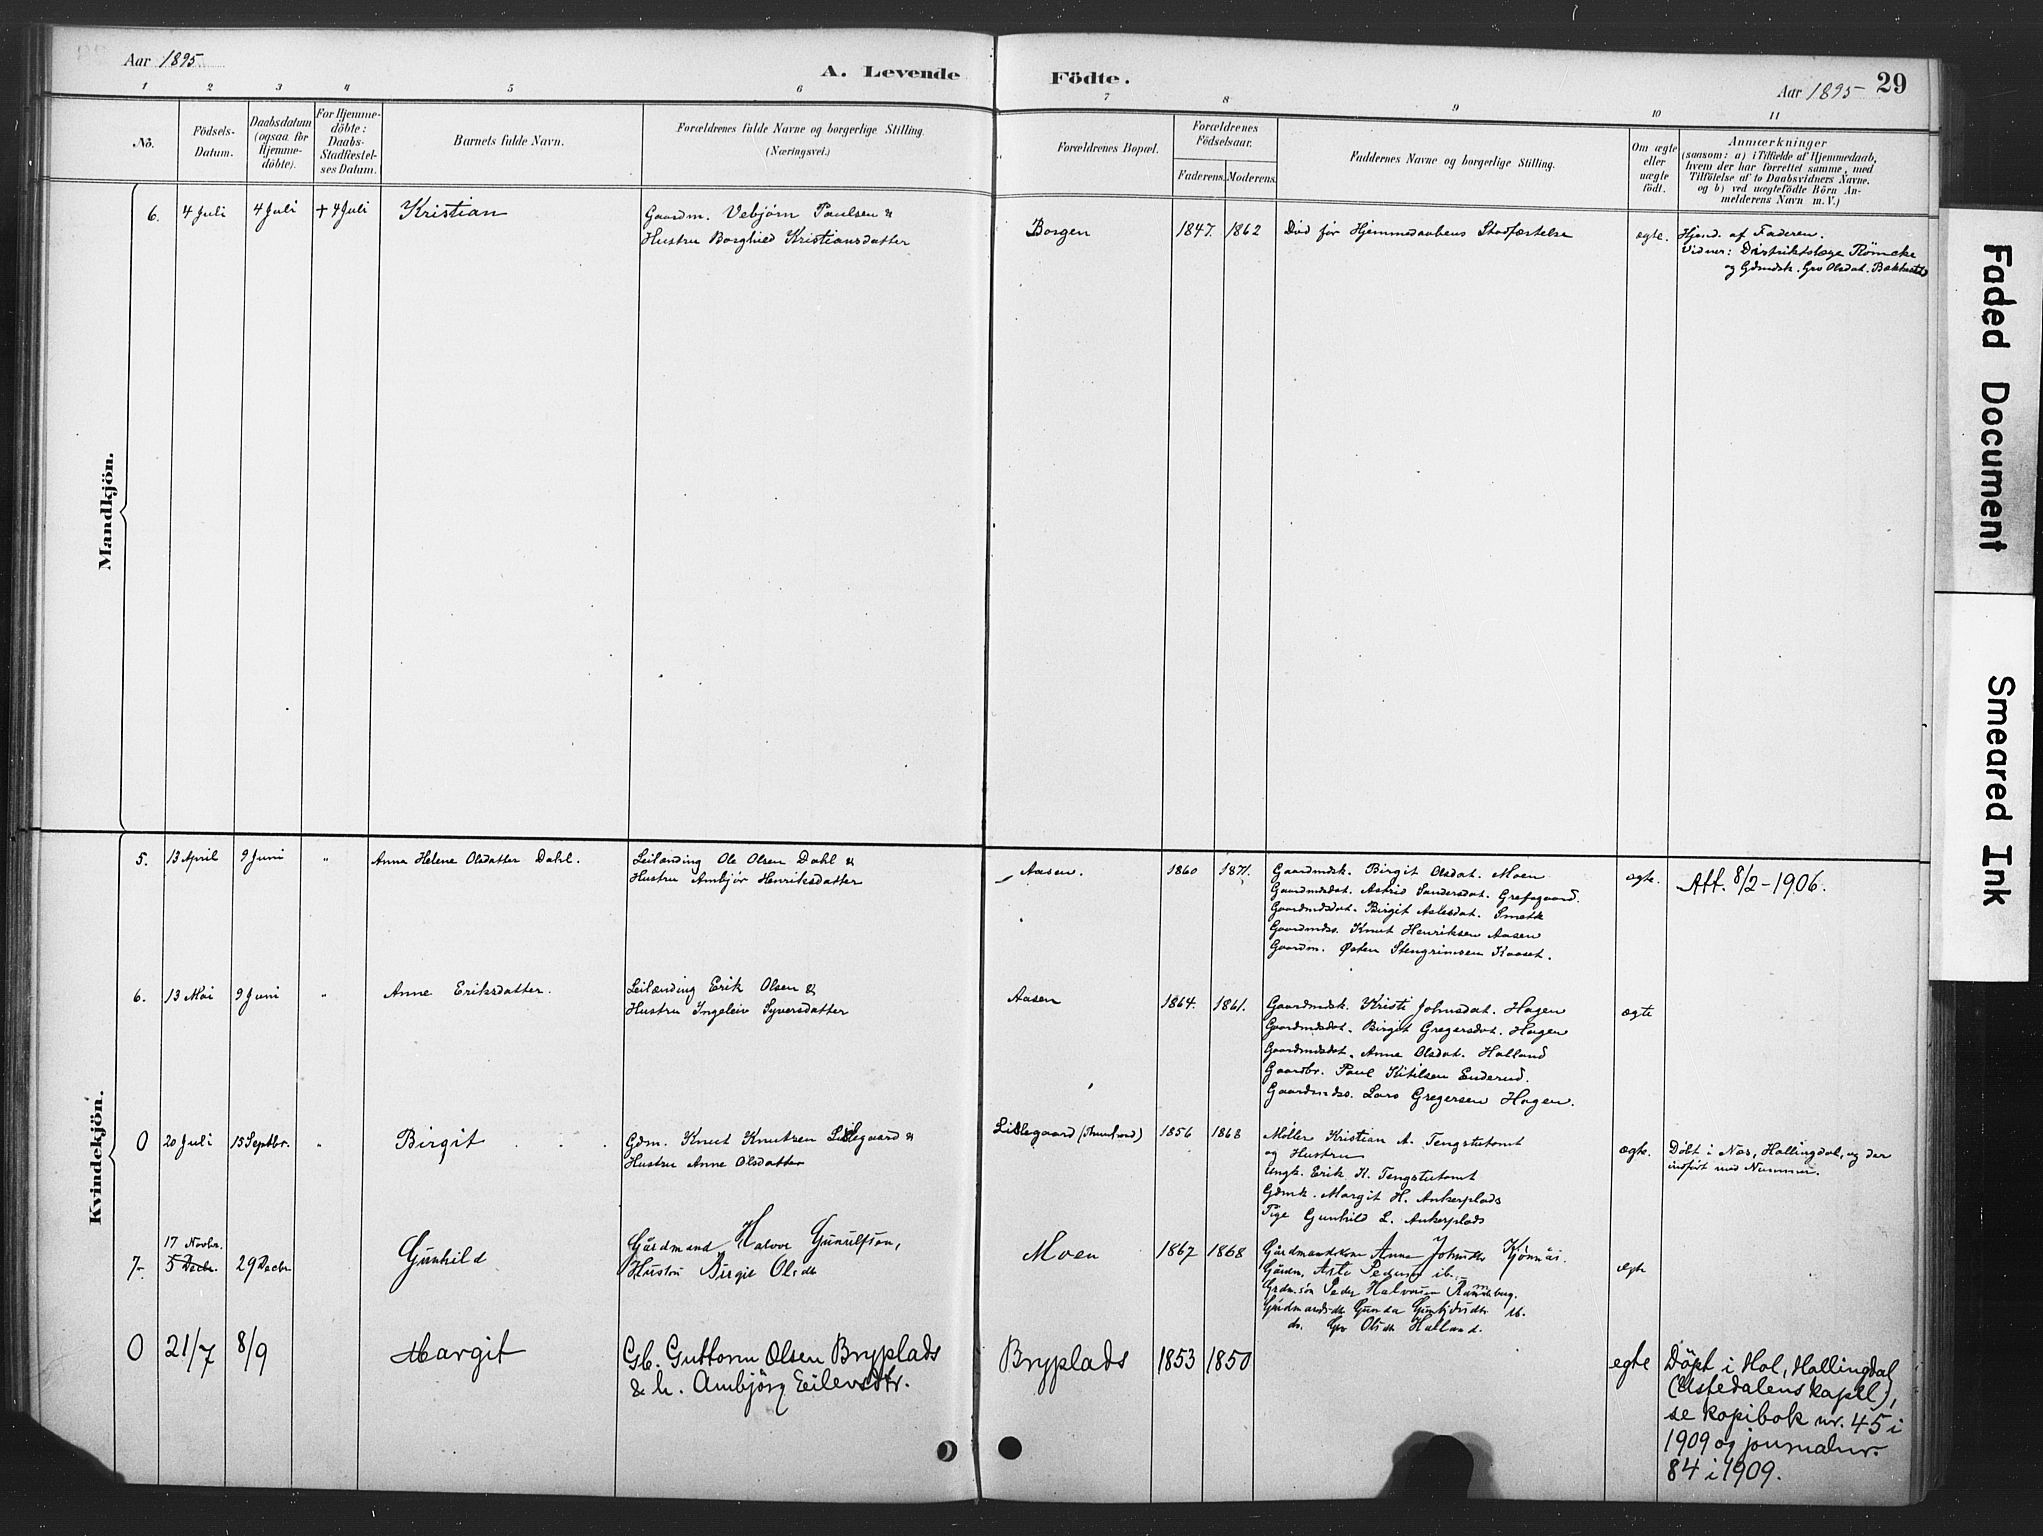 Aar 1895.
A. Levende Födte.
Aar 1895 29
1 2 3 4 5 6 7 8 9 10 11
No.
Födsels-
Datum.
Daabsdatum
(ogsaa for
Hjemme-
döbte).
For Hjemme-
döbte:
Daabs-
Stadfæstel-
ses Datum.
Barnets fulde Navn.
Forældrenes fulde Navne og borgerlige Stilling.
(Næringsvei.)
Forældrenes Bopæl.
Forældrenes
Födselsaar.
Faderens. Moderens.
Faddernes Navne og borgerlige Stilling.
Om ægte
eller
uægte
födt.
Anmærkninger
(saasom: a) i Tilfælde af Hjemmedaab,
hvem der har forrettet samme, med
Tilföielse af to Daabsvidners Navne.
og b) ved uægtefödte Börn An-
melderens Navn m. V.)
Mandkjön.
6. 4 Juli 4 Juli + 4 Juli Kristian
Gaardm. Vebjørn Paulsen &
Hustru Borghild Kristiansdatter
Borgen 1847. 1862 Død før Hjemmedaabens Stadfæstelse ægte.
Hjemd. af Faderen.
Vidner: Distriktslæge Römcke
og Gdmdsk. Gro Olsdat.
Kvindekjön.
5. 13 April 9 Juni " Anna Helene Olsdatter Dahl.
Leilænding Ole Olsen Dahl &
Hustru Ambjør Henriksdatter
Aasen. 1860 1871.
Gaardmdsk. Birgit Olsdat. Moen
Gaardmdsdat. Astrid Sandersdat. Grefsgaard.
Gaardmdsdat. Birgit Aslesdat.
Gaardmds. Knut Henriksen Aasen
Gaardm. Østen Stengrimsen Kaaset.
ægte. Att. 8/2-1906.
6. 13 Mai 9 Juni " Anne Eriksdatter.
Leilænding Erik Olsen &
Hustru Ingeleiv Syversdatter
Aasen 1864. 1861.
Gaardmdsk. Kristi Johnsdat. Hagen
Gaardmdsdat. Birgit Gregersdat. Hagen
Gaardmdsdat. Anne Olsdat. Halland
Gaardbr. Paul Kitilsen Enderud.
Gaardmds. Lars Gregersen Hagen.
ægte
0 20 Juli 15 Septbr. " Birgit
Gdm. Knut Knutsen Lislegaard &
Hustru Anne Olsdatter
Lislegaard 1856 1868
Møller Kristian A. Tengstutomt
og Hustru
Ungk. Erik K. Tengstutomt
Gdmk. Margit H. Ankerplads
Pige Gunhild L. Ankerplads
ægte. Döbt i Nes, Hallingdal, og der
indført med Nummer.
17 Novbr.
7. 5 Decbr. 29 Decbr Gunhild
Gårdmand Halvor Gunulfsen,
Hustru Birgit Olsdtr
Moen 1867 1868
Gårdmandskone Anne Johnsdtr Kjönnås.
Gårdm. Asle Pedersen ib.
Grdm.sön Peder Halvorsen
Gårdmandsdtr Gunda
do. Gro Olsdtr Halland.
egte
0 21/7 8/9 Margit
Gb. Guttorm Olsen Bryplads
& h. Ambjörg Eilevsdtr.
Bryplads 1853 1850 egte
Döpt i Hol, Hallingdal
(Ustedalens kapell),
se kopibok nr. 45 i
1909 og journalnr.
84 i 1909.
Faded Document
Smeared Ink